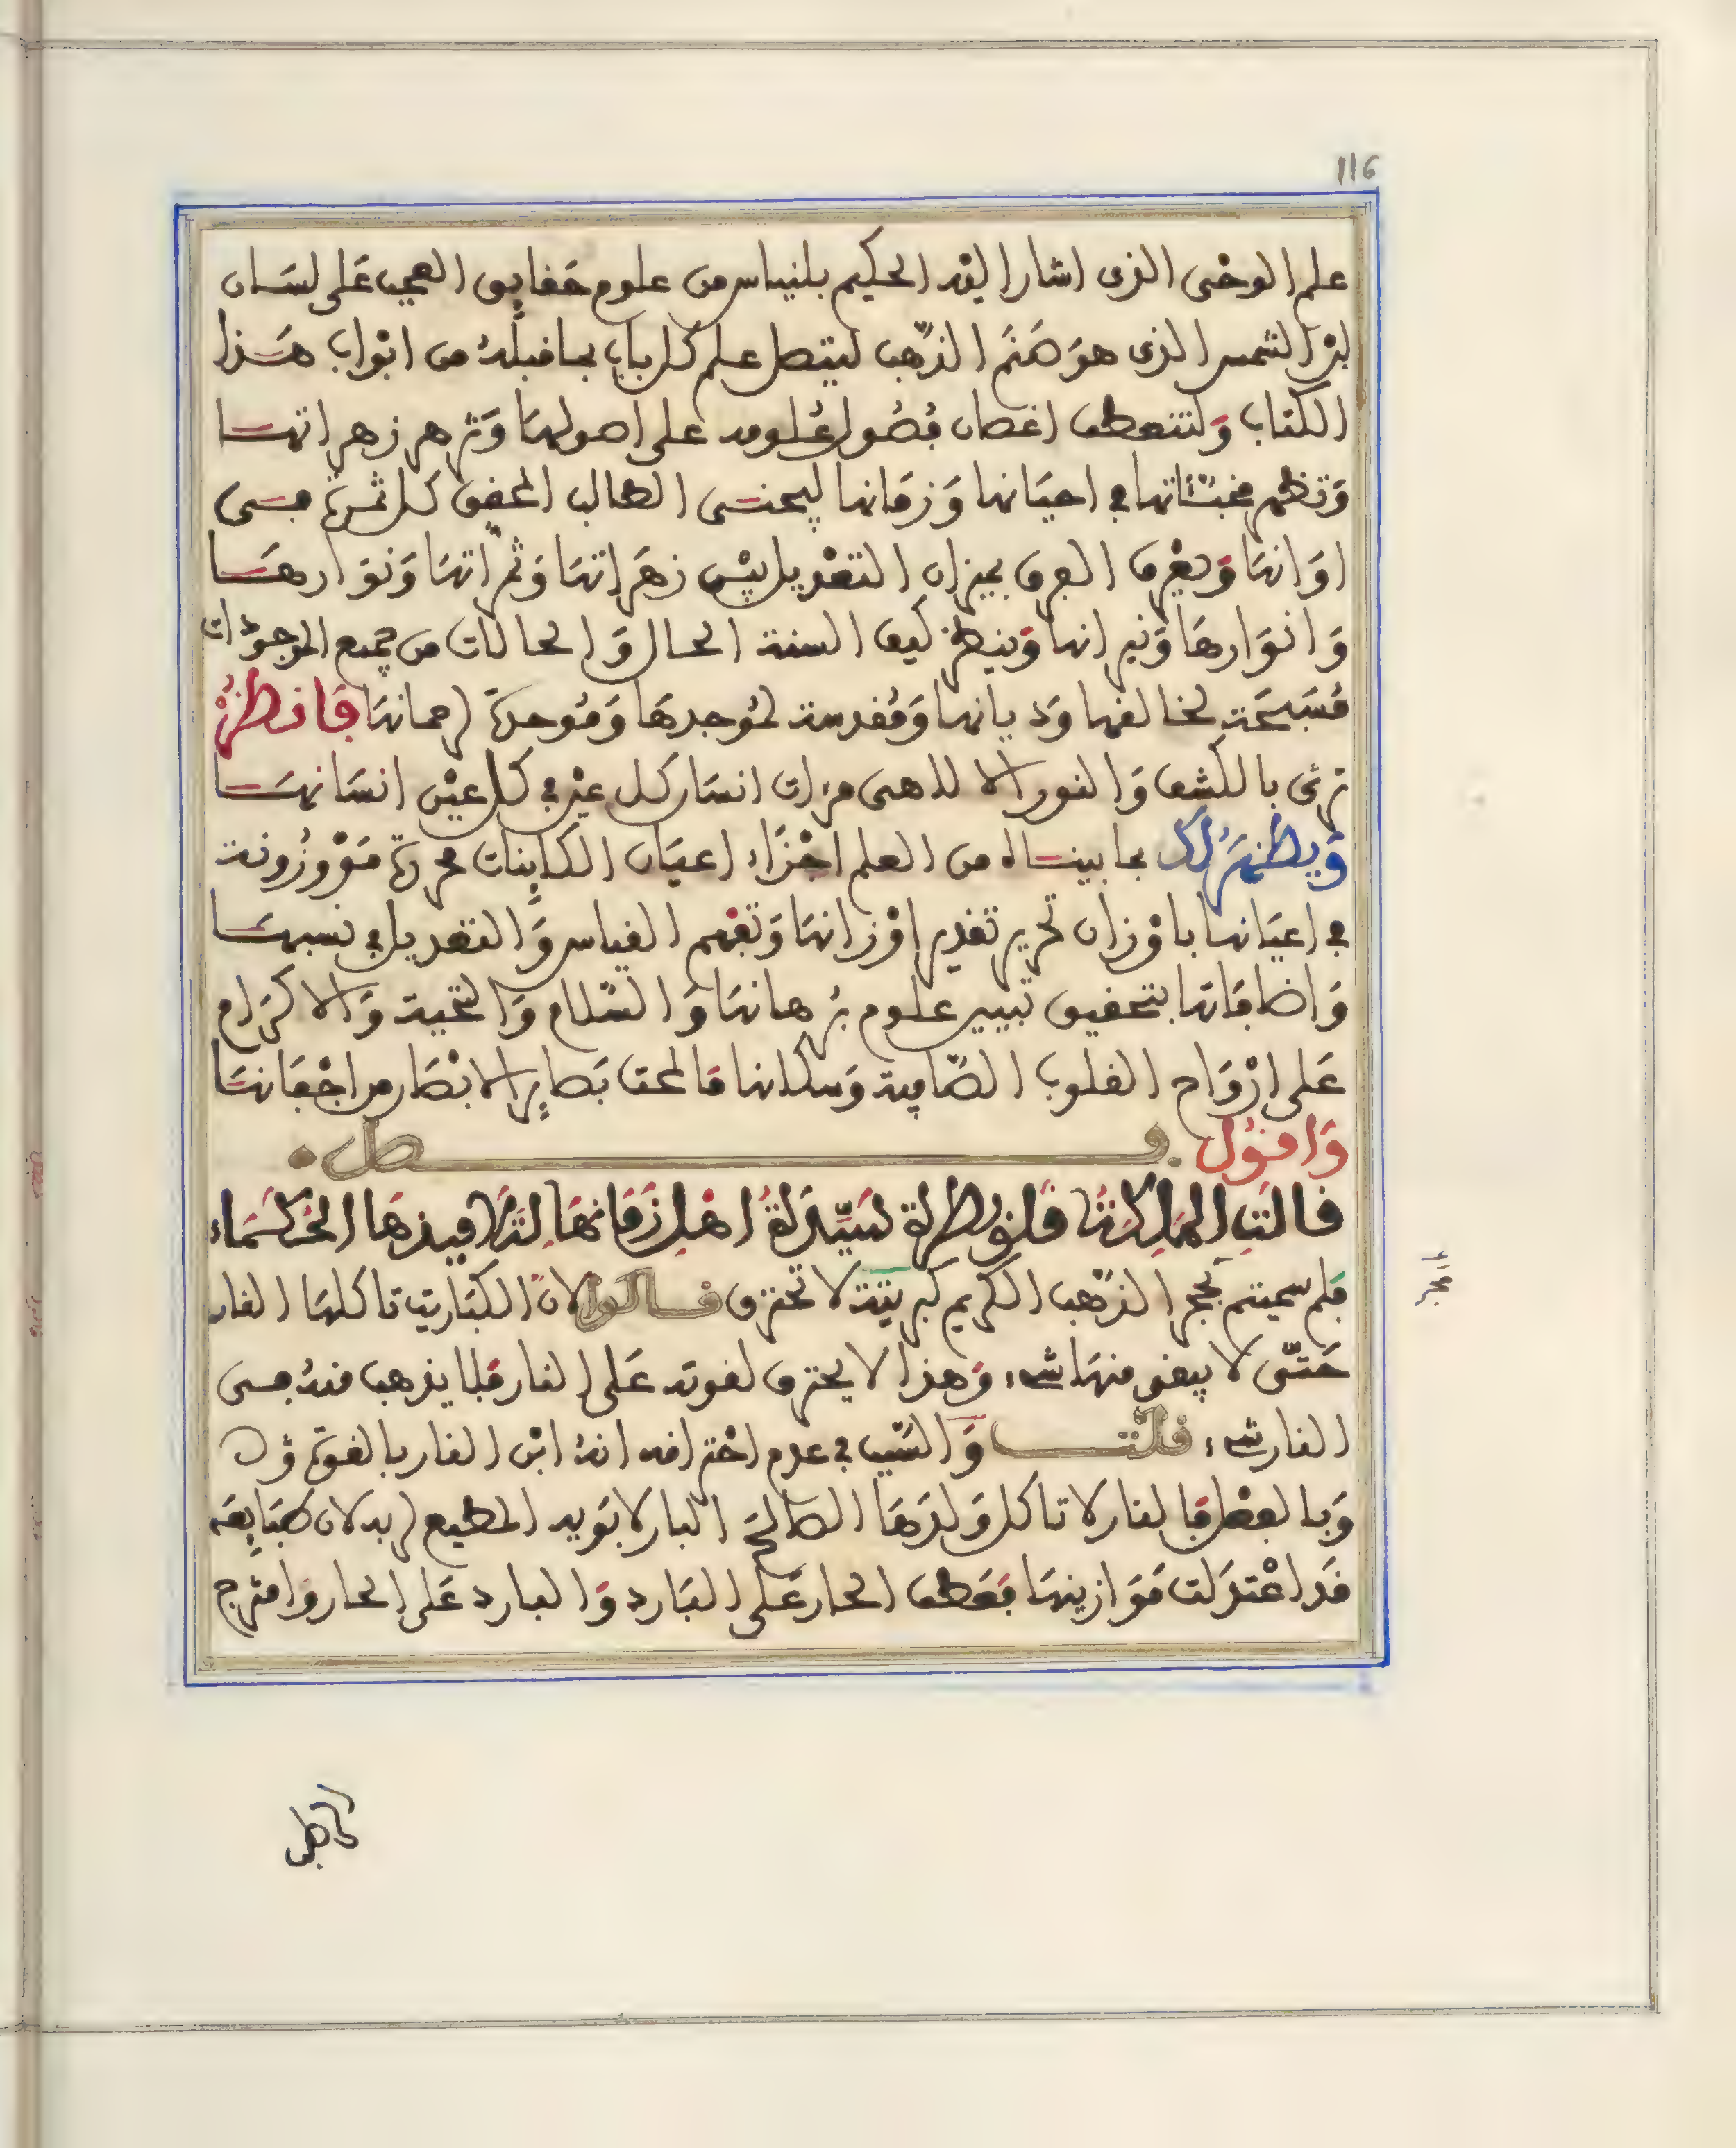 116
علم الوحى الذى اشار اليه الحكيم بلنياس من علوم حقايق العجب على لسان
لبن الشمس الذى هو صنم الذهب ليتصل علم كل باب بما قبله من ابواب هذا
الكتاب ولتنعطف اغصان فصول علومه على اصولها وتزهر زهراتها
وتظهر مخبئاتها فى احيانها وزمانها ليجنى الطالب المحقق كل ثمرة فى
اوانها ويفرق الفرق بميزان التعديل بين زهراتها وثمراتها ونوارها
وانوارها ونيرانها وينظر كيف السنة الحال والحالات من جميع الموجودات
مسبحة لخالقها وديانها ومقدسة لموجدها وموحدة رحمانها فانظر
ترى بالكشف والنور الالاهى مرات انسان كل عين فى كل عين انسانها
ويظهر لك بما بيناه من العلم اجزاء اعيان الكاينات محررة موزونة
فى اعيانها باوزان تحرير تقدير اوزانها وتفهم القياس والتعديل فى نسبها
واضافاتها بتحقيق تبيين علوم برهانها والسلام والتحية والاكرام
على ارواح القلوب الصافية وسكانها ما لمحت بصاير الابصار من اجفانها
واقول فصل
قالت الملكة قلوبطرة لسيدة اهل زمانها لتلاميذها الحكماء
فلم سميتم حجر الذهب الكريم كبريتة لا تحترق قالوا لان الكباريت تاكلها النار
حتى لا يبقى منها شىء وهذا لا يحترق لقوته على النار فلا يذهب منه فى
النار شىء قلت والسبب فى عدم احتراقه انه ابن النار بالقوة
وبالفعل فالنار لا تاكل ولدها الصالح البار لابويه المطيع لربه لان طبايعه
قد اعتدلت موازينها فعطف الحار على البارد والبارد على الحار وامتزج